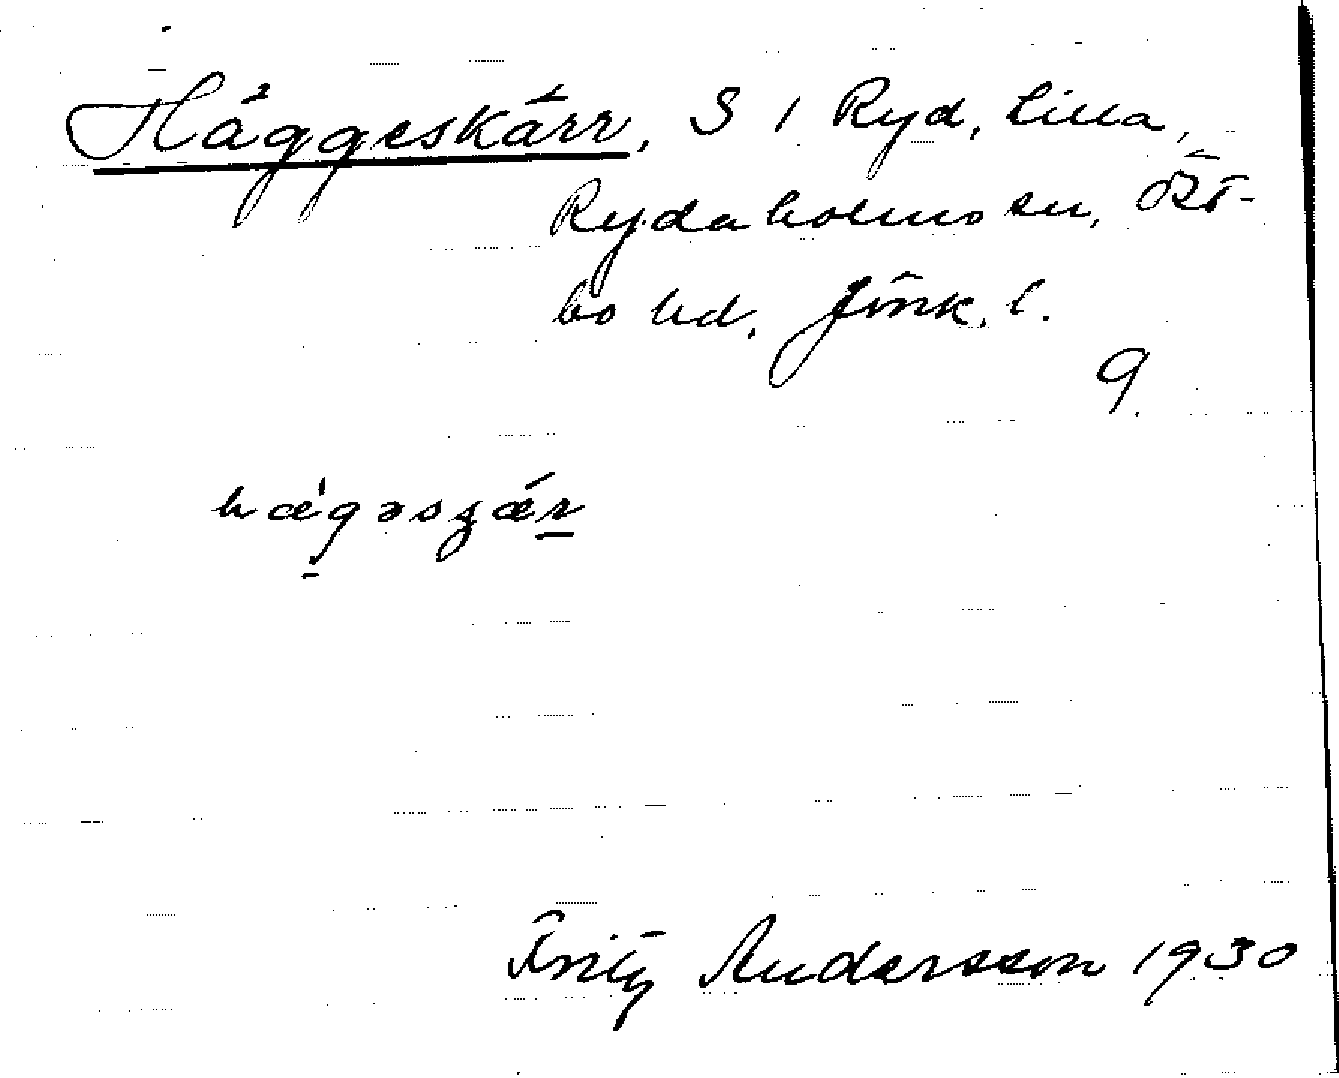 Häggeskärr, S 1 Ryd, Lilla,
Rydaholms sn, Öst-
bo hd, Jönk. l.
9.
Fritz Andersson 1930